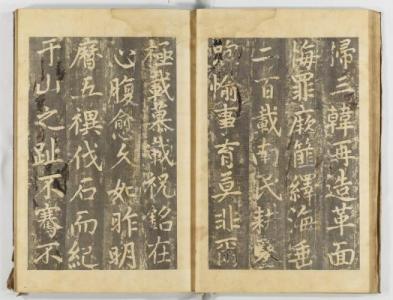 歸三韓再造革面
悔罪厥篚繹海垂
二百載南民耕
愉事育莫非爾
極載慕載祝銘在
心腹愈久如昨明
曆五禩伐石而紀
于山之趾不騫不